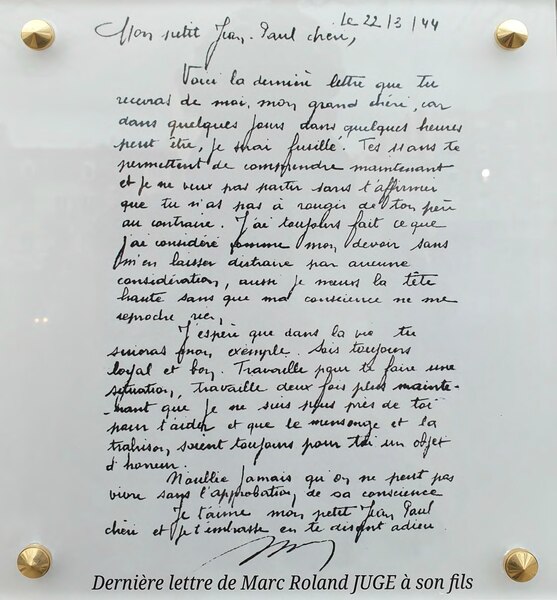 Le 22/3/44
Mon petit Jean-Paul chéri,
Voici la dernière lettre que tu
recevras de moi, mon grand chéri, car
dans quelques jours dans quelques heures
peut être, je serai fusillé. Tes 11 ans te
permettent de comprendre maintenant
et je ne veux pas partir sans t'affirmer
que tu n'as pas à rougir de ton père
au contraire. J'ai toujours fait ce que
j'ai considéré comme mon devoir sans
m'en laisser distraire par aucune
considération, aussi je meurs la tête
haute sans que ma conscience ne me
reproche rien.
J'espère que dans la vie tu
suivras mon exemple. Sois toujours
loyal et bon. Travaille pour te faire une
situation, travaille deux fois plus mainte-
nant que je ne suis plus près de toi
pour t'aider et que le mensonge et la
trahison, soient toujours pour toi un objet
d'horreur.
N'oublie jamais qu'on ne peut pas
vivre sans l'approbation, de sa conscience
Je t'aime mon petit Jean Paul
chéri et je t'embrasse en te disant adieu.
Dernière lettre de Marc Roland JUGE à son fils